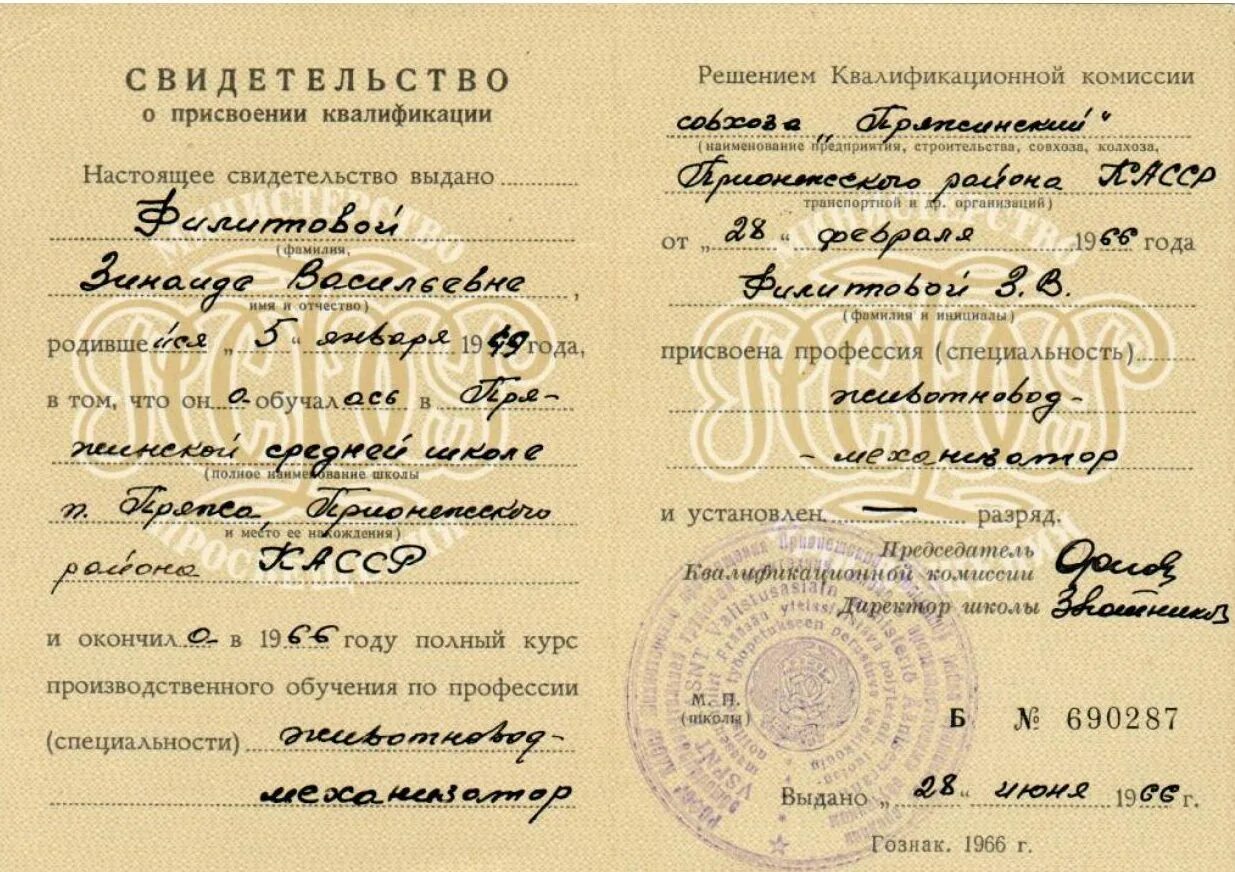 СВИДЕТЕЛЬСТВО
о присвоении квалификации
Настоящее свидетельство выдано
Филиповой
(фамилия,
Зинаиде Васильевне,
имя и отчество)
родившейся „5“ января 1949 года,
в том, что он а обучалась в Пря-
жинской средней школе
(полное наименование школы
п. Пряжа, Прионежского
и место ее нахождения)
района КАССР
и окончила в 1966 году полный курс
производственного обучения по профессии
(специальности) животновод-
механизатор
Решением Квалификационной комиссии
совхоза „Пряжинский“
(наименование предприятия, строительства, совхоза, колхоза,
Прионежского района КАССР
транспортной и др. организаций)
от „28“ февраля 1966 года
Филиповой З.В.
(фамилия и инициалы)
присвоена профессия (специальность)
животновод-
-механизатор
и установлен — разряд.
Председатель
Квалификационной комиссии
Директор школы
М. П.
(школы)
Б № 690287
Выдано „28“ июня 1966 г.
Гознак. 1966 г.
МИНИСТЕРСТВО
ПРОСВЕЩЕНИЯ
РСФСР